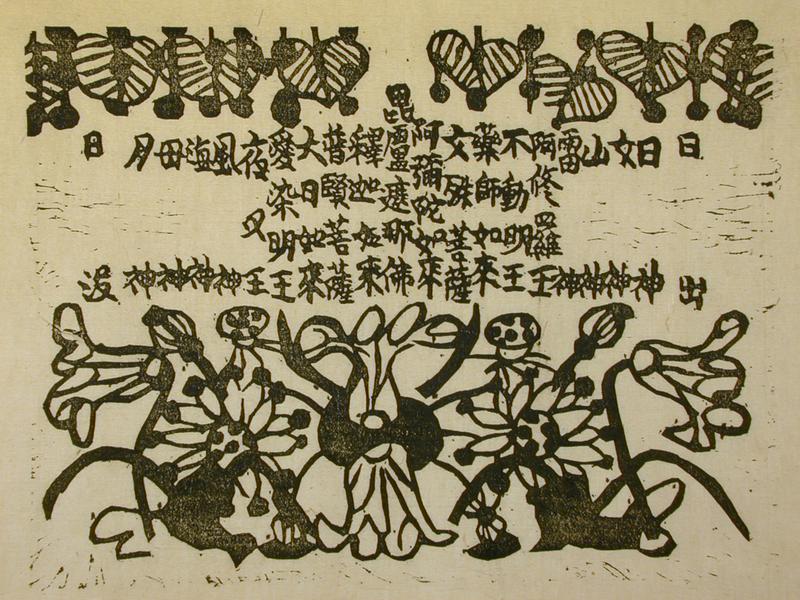 日出
日神
父神
山神
雷神
阿修羅王
不動明王
藥師如來
文殊菩薩
阿彌陀如來
毘盧遮那佛
釋迦如來
普賢菩薩
大日如來
愛染明王
夜叉王
風神
海神
母神
月神
日没